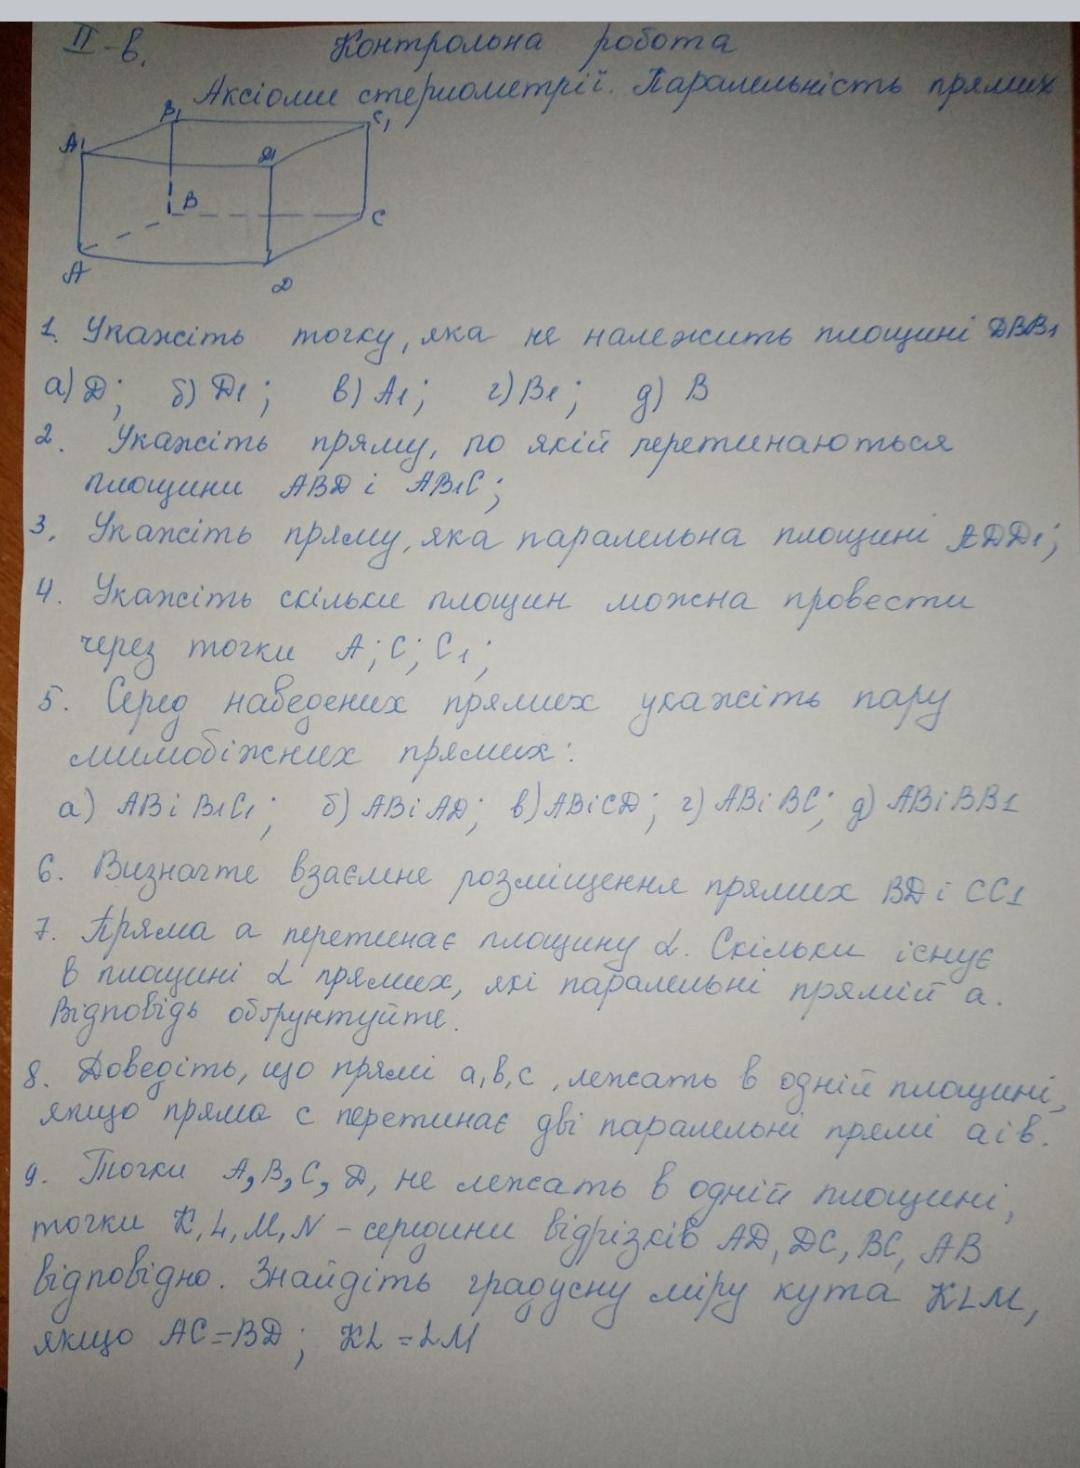 II-в. Контрольна робота
Аксіоми стериометрії. Паралельність прямих
B1 C1
A1 D1
B C
A D
1. Укажіть точку, яка не належить площині DBB1
а) D; б) D1; в) A1; г) B1; д) B
2. Укажіть пряму, по якій перетинаються
площини ABD і AB1C;
3. Укажіть пряму, яка паралельна площині ADD1;
4. Укажіть скільки площин можна провести
через точки A; C; C1;
5. Серед наведених прямих укажіть пару
мимобіжних прямих:
а) AB і B1C1; б) AB і AD; в) AB і CD; г) AB і BC; д) AB і BB1
6. Визначте взаємне розміщення прямих BD і CC1
7. Пряма a перетинає площину α. Скільки існує
в площині α прямих, які паралельні прямій a.
Відповідь обґрунтуйте.
8. Доведіть, що прямі a, b, c, лежать в одній площині,
якщо пряма c перетинає дві паралельні прямі a і b.
9. Точки A, B, C, D, не лежать в одній площині,
точки K, L, M, N – середини відрізків AD, DC, BC, AB
відповідно. Знайдіть градусну міру кута KLM,
якщо AC=BD; KL=LM